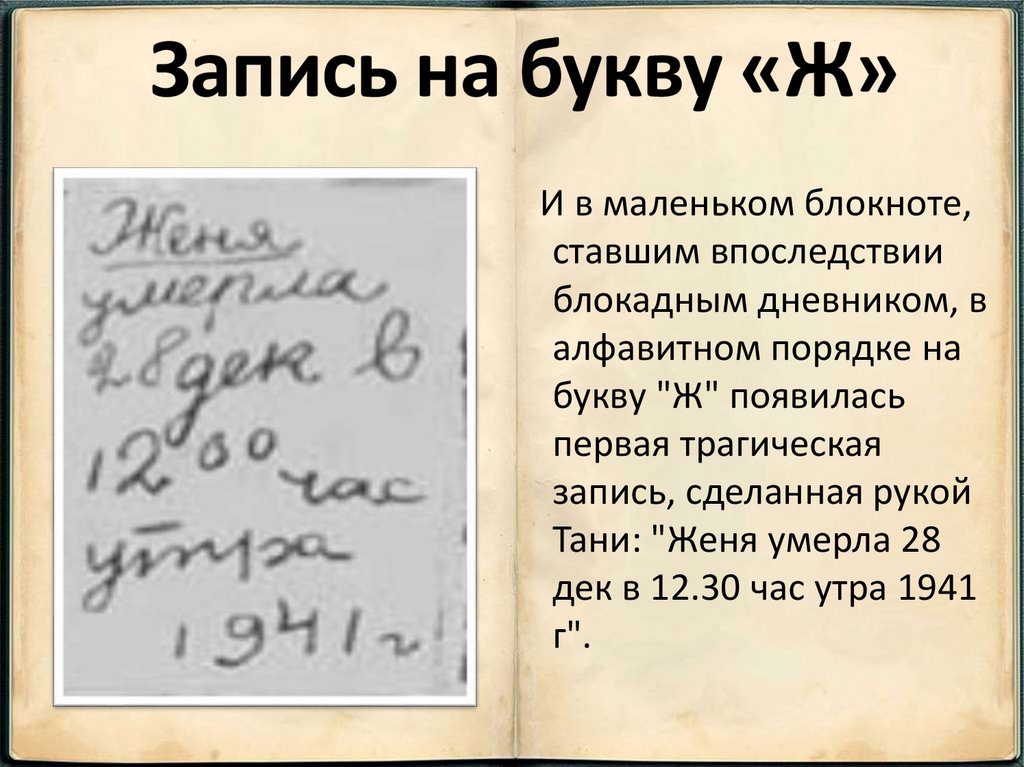 Запись на букву «Ж»
Женя
умерла
28 дек в
12 00 час
утра
1941 г
И в маленьком блокноте,
ставшим впоследствии
блокадным дневником, в
алфавитном порядке на
букву "Ж" появилась
первая трагическая
запись, сделанная рукой
Тани: "Женя умерла 28
дек в 12.30 час утра 1941
г".